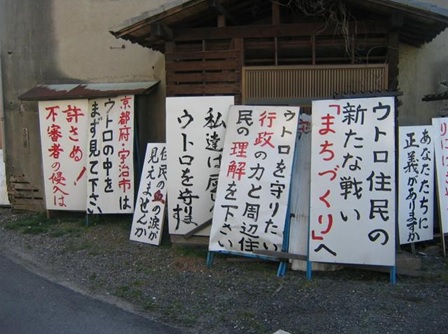 あなたたちに
正義がありますか
ウトロ住民の
新たな戦い
「まちづくり」へ
ウトロを守りたい
行政の力と周辺住
民の理解を下さい
私達は
ウトロを守ます
住民の血の涙が
見えませんか
京都府・宇治市は
ウトロの中を
まず見て下さい
許さぬ!
不審者の侵入は